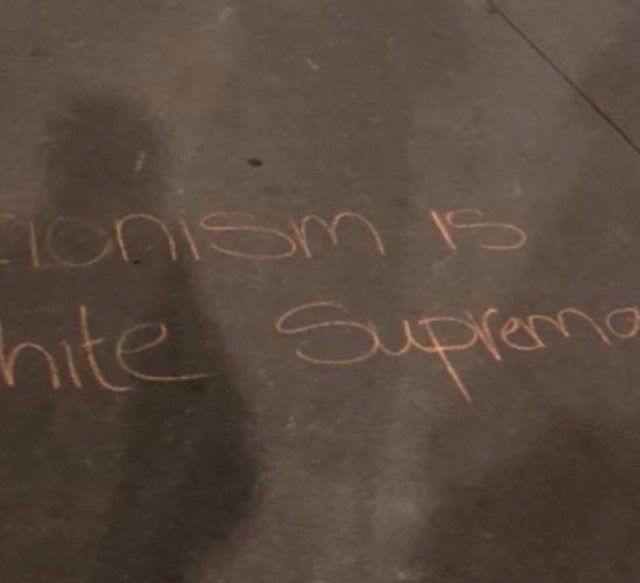 ionism is
hite Suprema